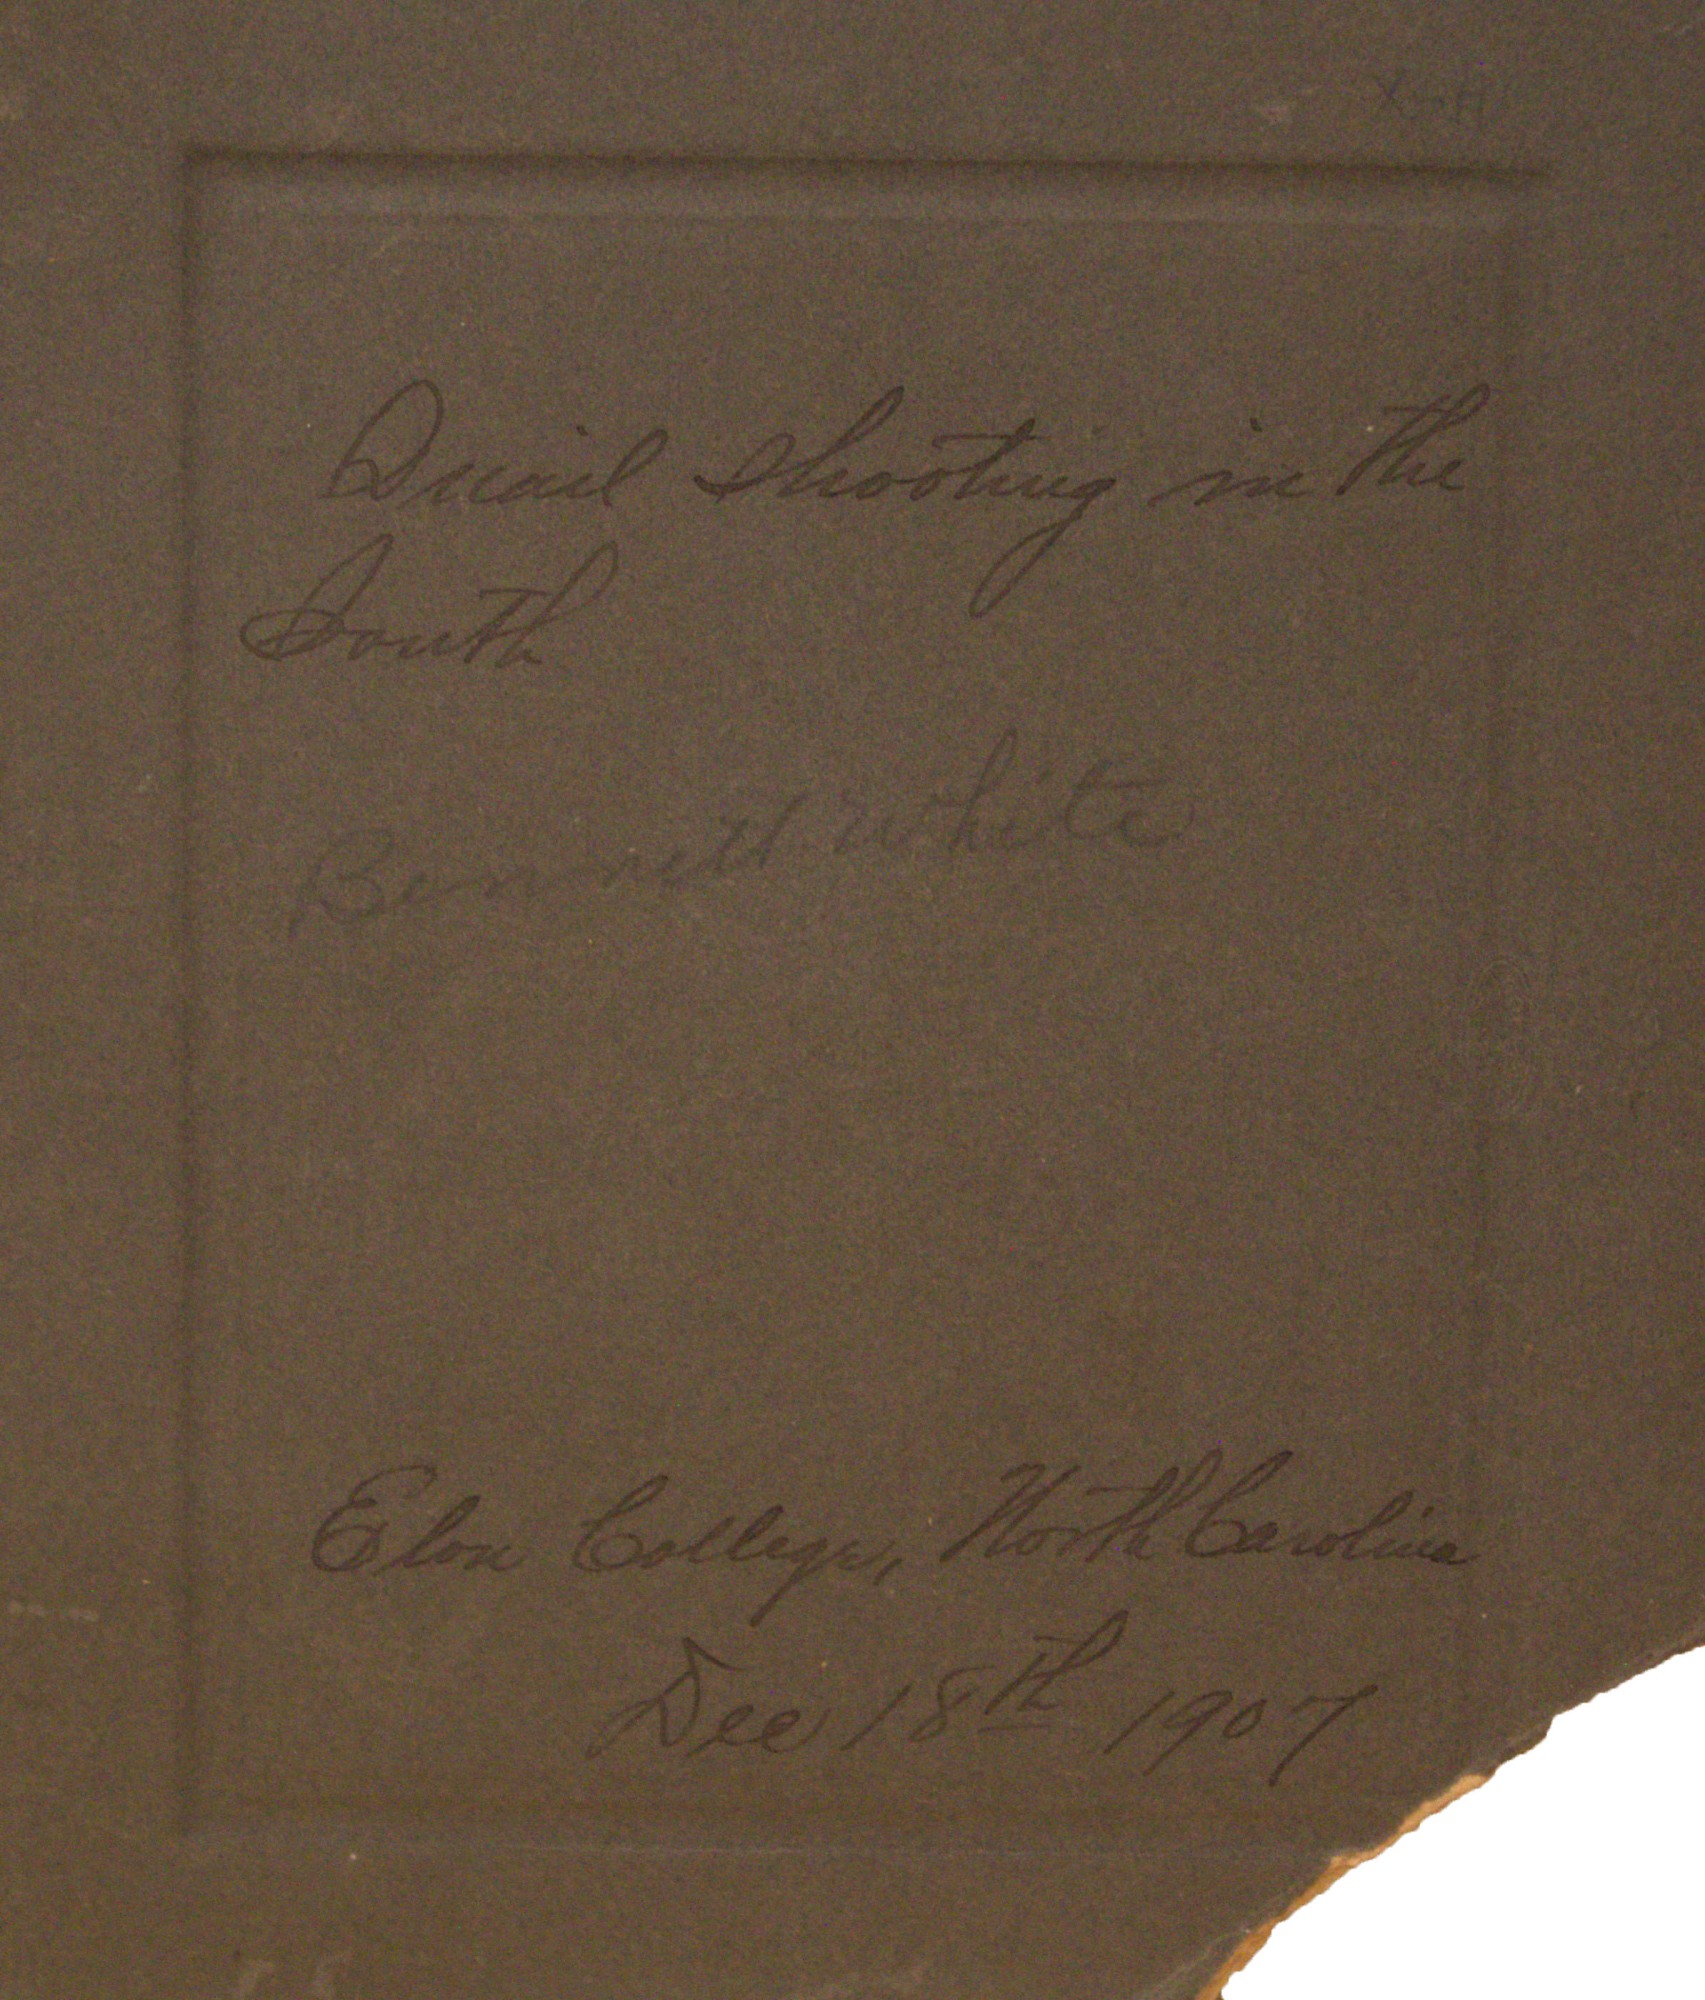 Quail shooting in the
South
Bennett White
Elon College, North Carolina
Dec 18th 1907